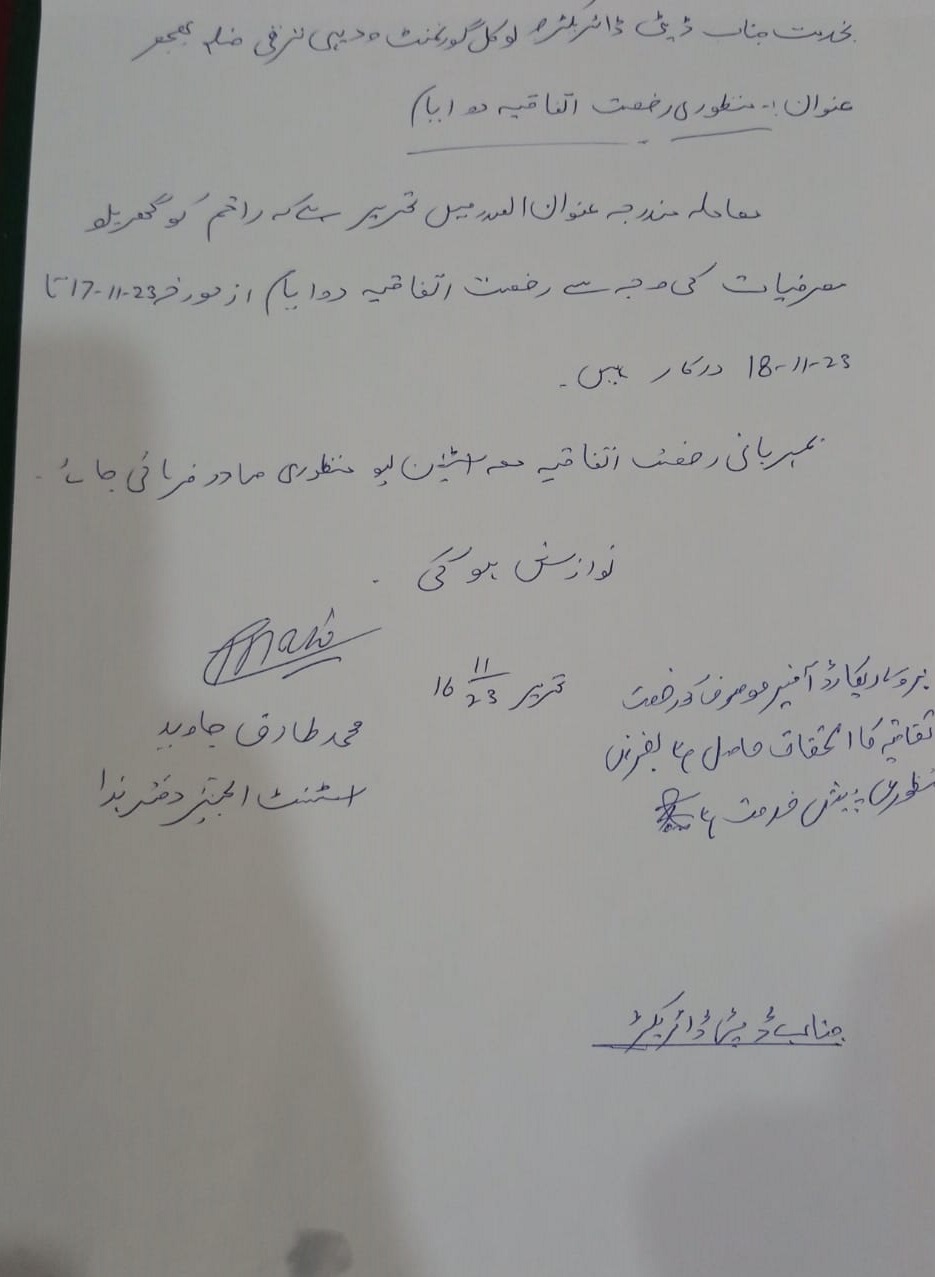 بخدمت جناب ڈپٹی ڈائریکٹر لوکل گورنمنٹ و دیہی ترقی ضلع بھمبر
عنوان :- منظوری رخصت اتفاقیہ دو ایام
معاملہ مندرجہ عنوان الصدر میں تحریر ہے کہ راقم کو گھریلو
مصرفیات کی وجہ سے رخصت اتفاقیہ دو ایام از مورخہ 17-11-23 تا
18-11-23 درکار ہیں ۔
بمہربانی رخصت اتفاقیہ معہ اسٹیشن لیو منظوری صادر فرمائی جائے ۔
نوازش ہو گی ۔
تحریر 16 11/23
محمد طارق جاوید
اسسٹنٹ انجینئر دفتر ہذا
بروئے ریکارڈ آفیسر موصوف کو رخصت
اتفاقیہ کا استحقاق حاصل ہے بغرض
منظوری پیش خدمت ہے
جناب ڈپٹی ڈائریکٹر